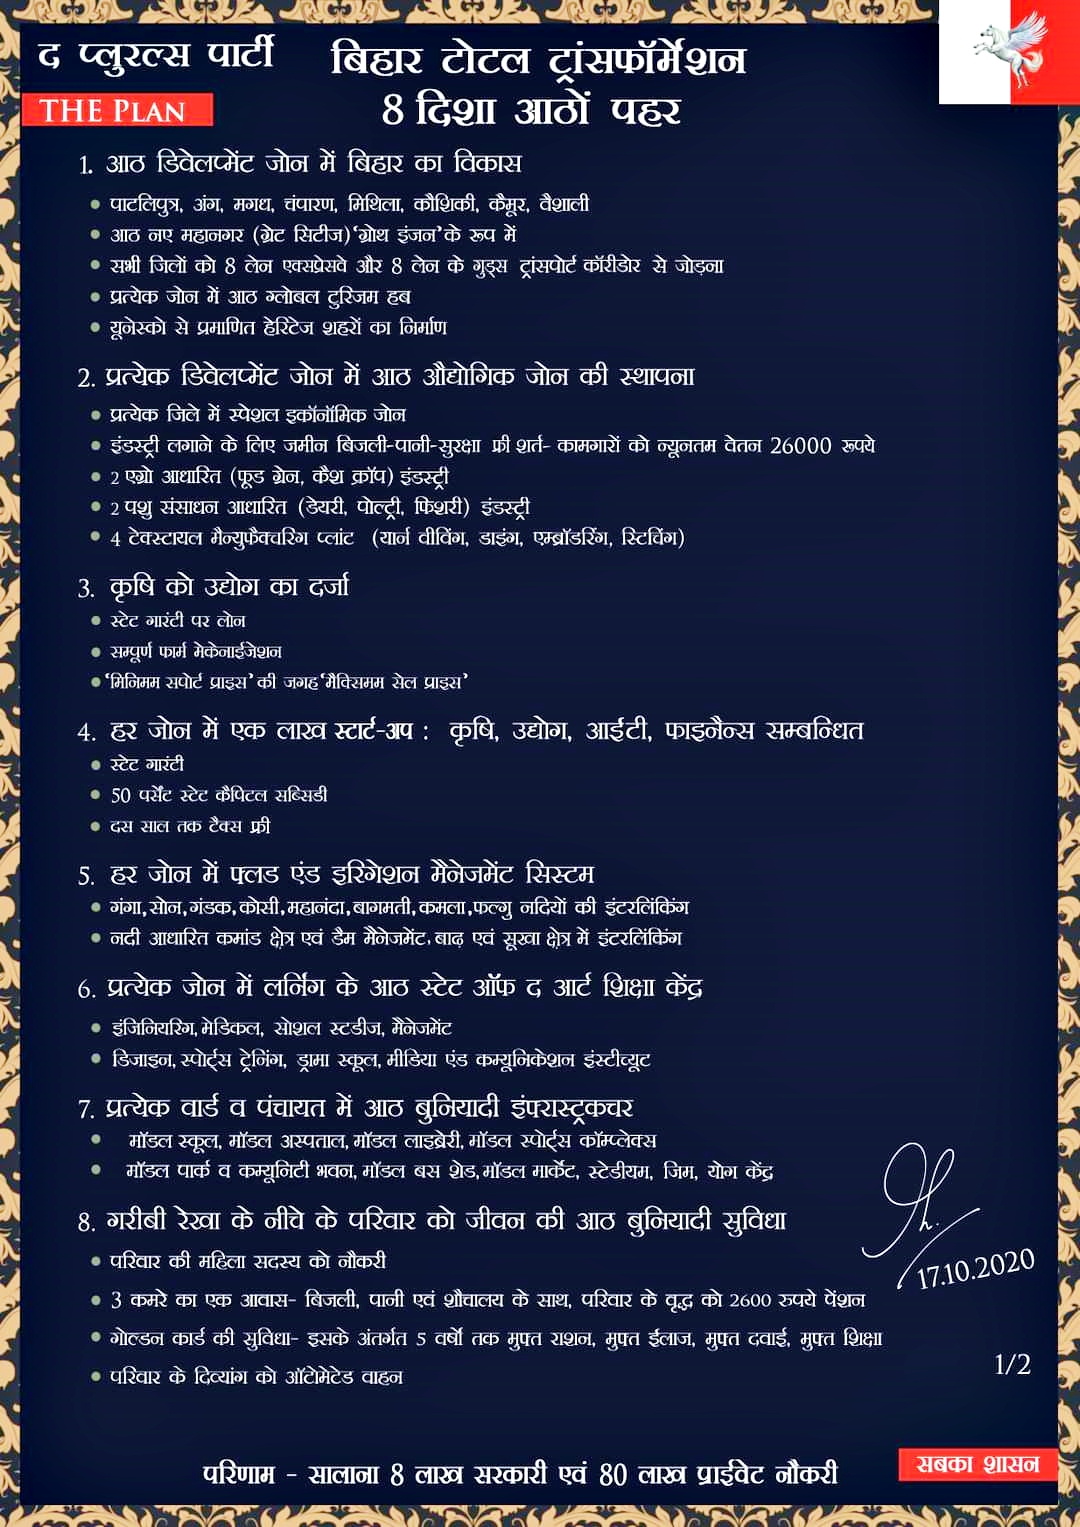 द प्लुरल्स पार्टी
THE PLAN
बिहार टोटल ट्रांसफॉर्मेशन
8 दिशा आठों पहर
1. आठ डिवेलप्मेंट जोन में बिहार का विकास
पाटलिपुत्र, अंग, मगध, चंपारण, मिथिला, कौशिकी, कैमूर, वैशाली
आठ नए महानगर (ग्रेट सिटीज)‘ग्रोथ इंजन’के रूप में
सभी जिलों को 8 लेन एक्सप्रेसवे और 8 लेन के गुड्स ट्रांसपोर्ट कॉरीडोर से जोड़ना
प्रत्येक जोन में आठ ग्लोबल टुरिजम हब
यूनेस्को से प्रमाणित हेरिटेज शहरों का निर्माण
2. प्रत्येक डिवेलप्मेंट जोन में आठ औद्योगिक जोन की स्थापना
प्रत्येक जिले में स्पेशल इकॉनॉमिक जोन
इंडस्ट्री लगाने के लिए जमीन बिजली-पानी-सुरक्षा फ्री शर्त- कामगारों को न्यूनतम वेतन 26000 रूपये
2 एग्रो आधारित (फूड ग्रेन, कैश क्रॉप) इंडस्ट्री
2 पशु संसाधन आधारित (डेयरी, पोल्ट्री, फिशरी) इंडस्ट्री
4 टेक्स्टायल मैन्युफैक्चरिंग प्लांट (यार्न वीविंग, डाइंग, एम्ब्रॉडरिंग, स्टिचिंग)
3. कृषि को उद्योग का दर्जा
स्टेट गारंटी पर लोन
सम्पूर्ण फार्म मेकेनाईजेशन
‘मिनिमम सपोर्ट प्राइस’ की जगह ‘मैक्सिमम सेल प्राइस’
4. हर जोन में एक लाख स्टार्ट-अप : कृषि, उद्योग, आईटी, फाइनैन्स सम्बन्धित
स्टेट गारंटी
50 पर्सेंट स्टेट कैपिटल सब्सिडी
दस साल तक टैक्स फ्री
5. हर जोन में फ्लड एंड इरिगेशन मैनेजमेंट सिस्टम
गंगा,सोन,गंडक,कोसी,महानंदा,बागमती,कमला,फल्गु नदियों की इंटरलिंकिंग
नदी आधारित कमांड क्षेत्र एवं डैम मैनेजमेंट, बाढ़ एवं सूखा क्षेत्र में इंटरलिंकिंग
6. प्रत्येक जोन में लर्निंग के आठ स्टेट ऑफ द आर्ट शिक्षा केंद्र
इंजिनियरिंग,मेडिकल, सोशल स्टडीज, मैनेजमेंट
डिजाइन,स्पोर्ट्स ट्रेनिंग, ड्रामा स्कूल,मीडिया एंड कम्यूनिकेशन इंस्टीच्यूट
7. प्रत्येक वार्ड व पंचायत में आठ बुनियादी इंफ्रास्ट्रकचर
मॉडल स्कूल, मॉडल अस्पताल,मॉडल लाइब्रेरी,मॉडल स्पोर्ट्स कॉम्प्लेक्स
मॉडल पार्क व कम्यूनिटी भवन,मॉडल बस शेड,मॉडल मार्केट, स्टेडीयम, जिम, योग केंद्र
8. गरीबी रेखा के नीचे के परिवार को जीवन की आठ बुनियादी सुविधा
परिवार की महिला सदस्य को नौकरी
3 कमरे का एक आवास- बिजली, पानी एवं शौचालय के साथ, परिवार के वृद्ध को 2600 रुपये पेंशन
गोल्डन कार्ड की सुविधा- इसके अंतर्गत 5 वर्षों तक मुफ्त राशन, मुफ्त ईलाज, मुफ्त दवाई, मुफ्त शिक्षा
परिवार के दिव्यांग को ऑटोमेटेड वाहन
17.10.2020
1/2
परिणाम - सालाना 8 लाख सरकारी एवं 80 लाख प्राईवेट नौकरी
सबका शासन